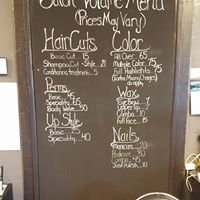 Salon Volume Menu
(Prices May Vary)
Hair Cuts
Basic Cut 15
Shampoo Cut Style 21
Conditioning treatments 5
Perms
Basic 45
Speciality 65
Body Wave 50
Up Style
Basic 25
Speciality 40
Color
All Over 65
Multiple Color 75
Full Highlights 75
Wax
Eye Brow
Upper Lip
Combo
Full face
Nails
Manicure 20
Pedicure 30
Combo 45